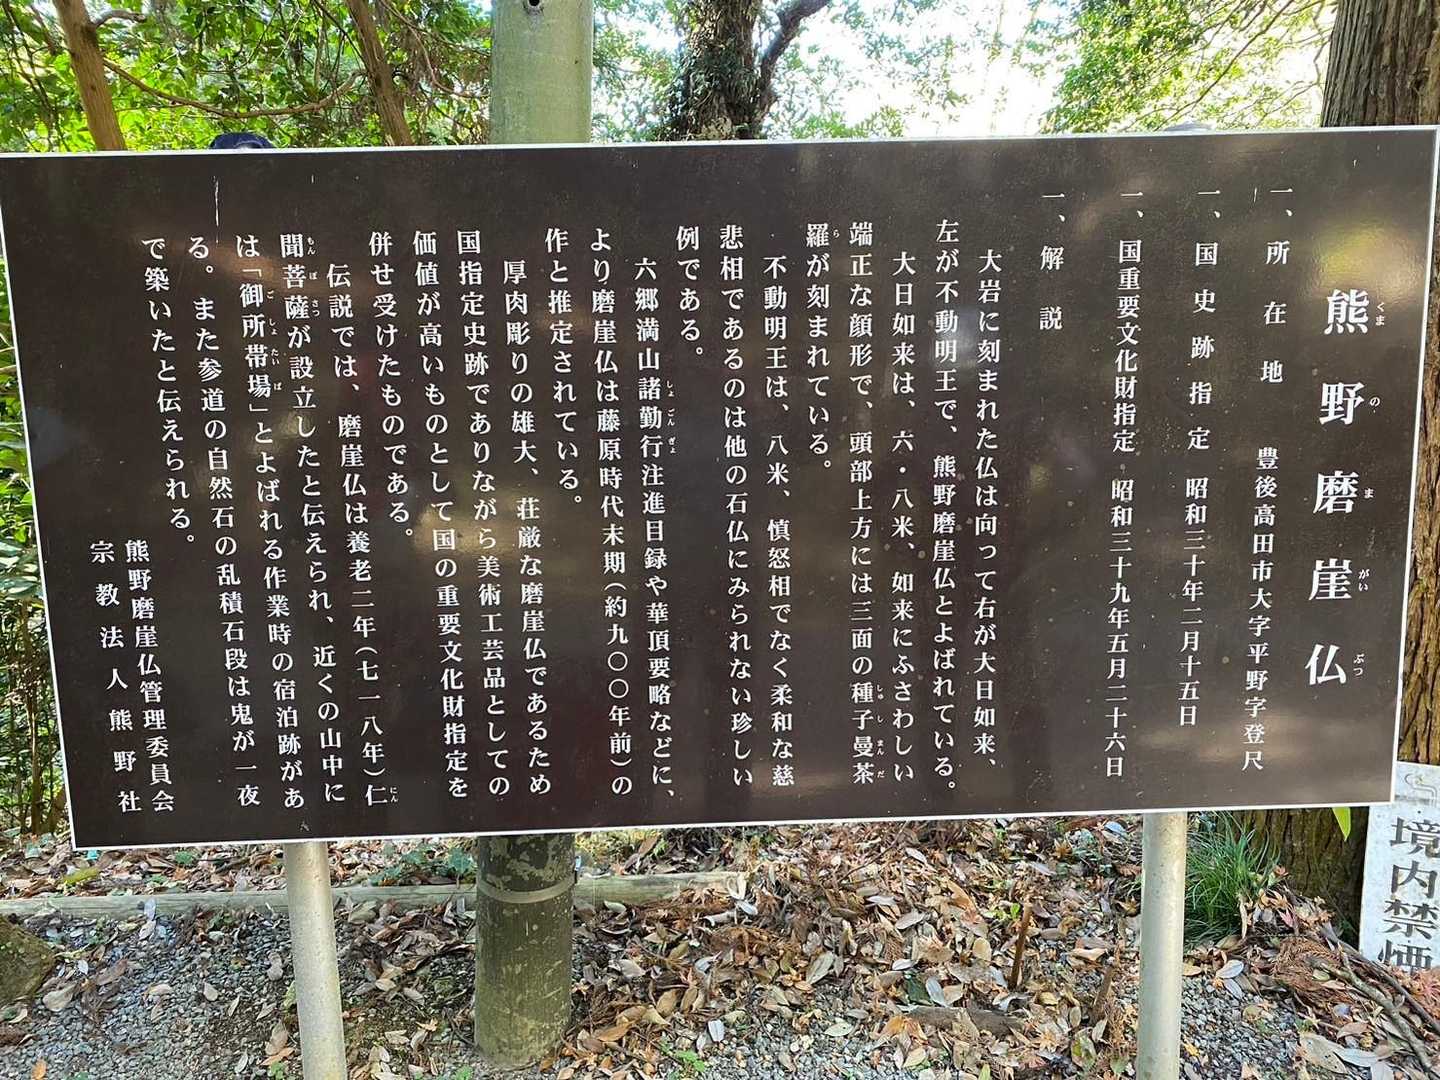 熊野磨崖仏
くまのまがいぶつ
一、所在地 豊後高田市大字平野字登尺
一、国史跡指定 昭和三十年二月十五日
一、国重要文化財指定 昭和三十九年五月二十六日
一、解説
大岩に刻まれた仏は向って右が大日如来、
左が不動明王で、熊野磨崖仏とよばれている。
大日如来は、六・八米、如来にふさわしい
端正な顔形で、頭部上方には三面の種子曼荼
しゅしまんだ
羅が刻まれている。
ら
不動明王は、八米、慎怒相でなく柔和な慈
悲相であるのは他の石仏にみられない珍しい
例である。
六郷満山諸勤行注進目録や華頂要略などに、
しょごんぎょ
より磨崖仏は藤原時代末期(約九〇〇年前)の
作と推定されている。
厚肉彫りの雄大、荘厳な磨崖仏であるため
国指定史跡でありながら美術工芸品としての
価値が高いものとして国の重要文化財指定を
併せ受けたものである。
伝説では、磨崖仏は養老二年(七一八年)仁
にん
聞菩薩が設立したと伝えられ、近くの山中に
もんぼさつ
は「御所帯場」とよばれる作業時の宿泊跡があ
ごしょたいば
る。また参道の自然石の乱積石段は鬼が一夜
で築いたと伝えられる。
熊野磨崖仏管理委員会
宗教法人熊野社
境内禁煙